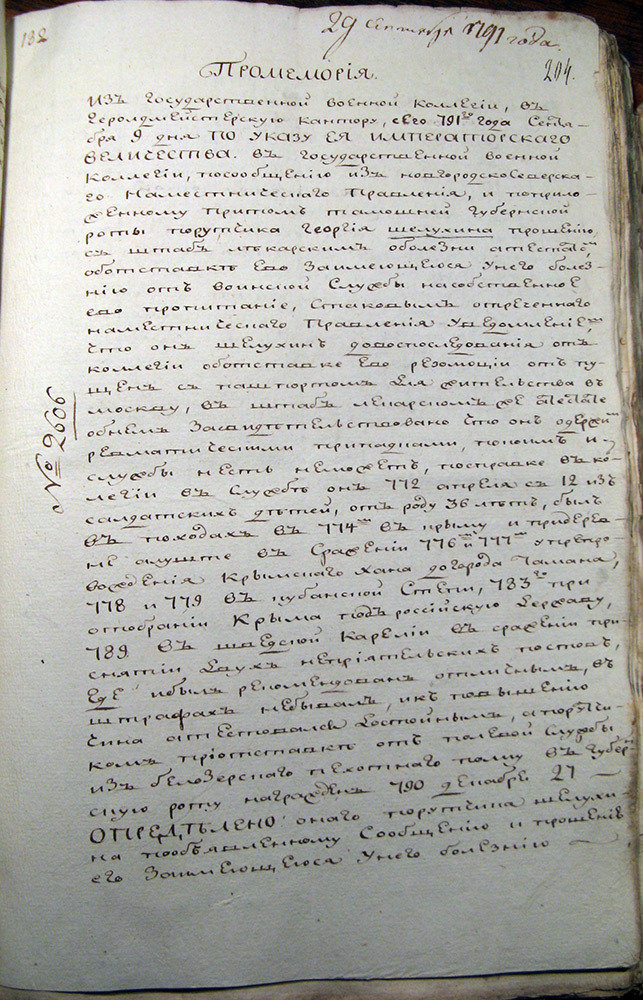 132
29 сентября 1791 года.
204.
Промеморія.
изъ Государственной военной коллегіи, въ
Герольдмейстерскую кантору, сего 791го года Сентя-
бря 9 дня ПО УКАЗУ ЕЯ ИМПЕРАТОРСКАГО
ВЕЛИЧЕСТВА. въ Государственной военной
коллегіи, посообщению изъ новгородскосеверска-
го наместническаго правленія, и поприло-
женному притомъ тамошней губернской
роты порутчика георгія шелухина прошению,
съ штабъ лѣкарскимъ оболезни атестатомъ
оботставкѣ Ево Заимеющеюся Унего болез-
нію отъ воинской Службы насобственное
ево пропитаніе, Стаковымъ отреченнаго
наместническаго правленія Уведомлениемъ
что онъ шелухинъ довоспоследованія отъ
коллегіи оботставке Ево резолюціи отпу-
щенъ съ пашпортомъ для жительства въ
москву, въ штабъ лекарскомъ же атестате
обнемъ Засвидетельствовано что онъ одержимъ
ревматическими припадками, покоимъ и
службы несть неможетъ, посправке въ ко-
легіи въ Службѣ онъ 772 апреля съ 12 изъ
салдатскихъ дѣтей, отъ роду 36 лѣтъ, былъ
въ походахъ въ 774мъ въ крыму и придерев-
не алуште въ Сраженіи 776м и 777мъ упрепро-
вожденія Крымскаго Хана догорода Тамана,
778 и 779 въ кубанской Степи, 783го при
отобраніи Крыма подъ россійскую державу,
789 въ шведской Кареліи въ сраженіи при
снятіи двухъ непріятельскихъ постовъ,
где ибылъ рекомендованъ отличнымъ, въ
штрафахъ небывалъ, икъ повышению
чина атестовался достойнымъ, апорутчи-
комъ приотставкѣ отъ полевой Службы
изъ белозерскаго пехотнаго полку въ губерн-
скую роту награжденъ 790 декабря 27 —
ОПРЕДѢЛЕНО онаго порутчика шелухи-
на пообъявленному Сообщению и прошению
его Заимеющеюся Унего болезнію —
№ 2606